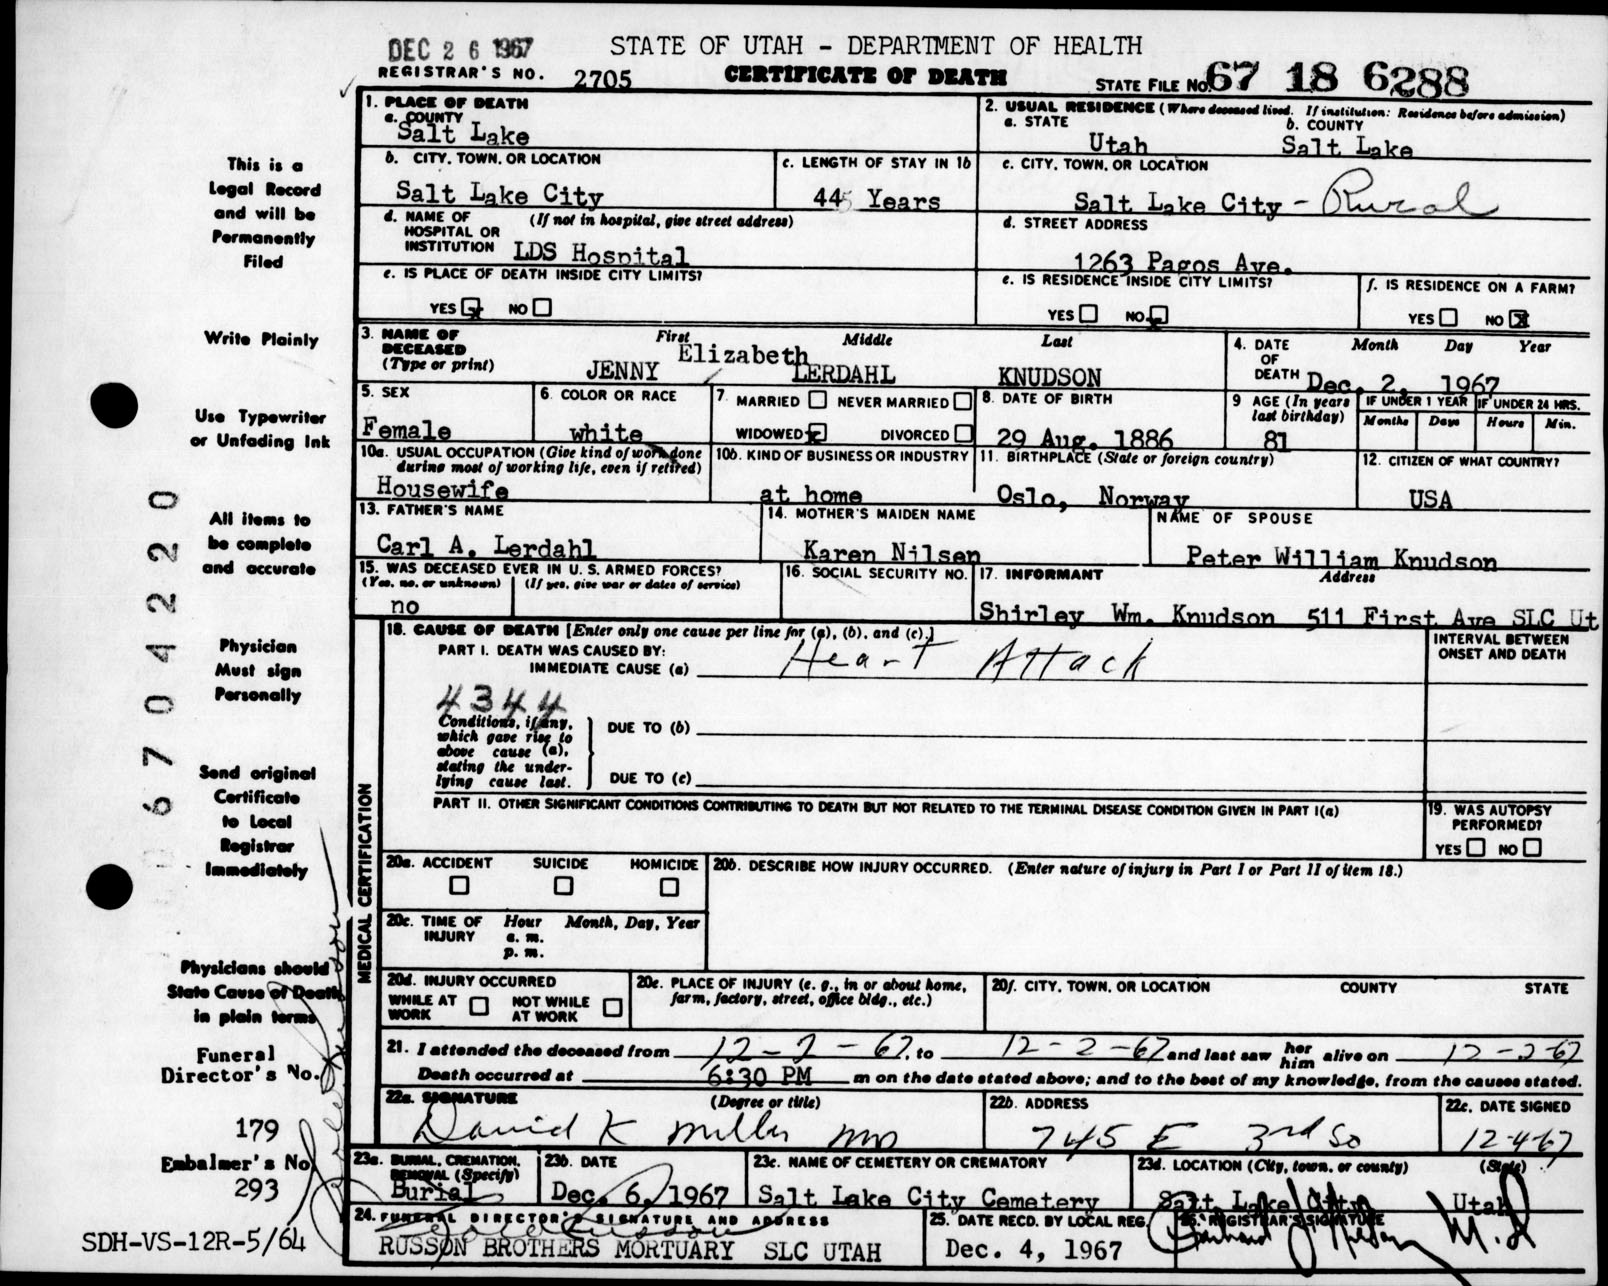 DEC 26 1967
STATE OF UTAH - DEPARTMENT OF HEALTH
REGISTRAR'S NO. 2705
CERTIFICATE OF DEATH
STATE FILE NO. 67 18 6288
This is a
Legal Record
and will be
Permanently
Filed
Write Plainly
Use Typewriter
or Unfading Ink
All items to
be complete
and accurate
Physician
Must sign
Personally
Send original
Certificate
to Local
Registrar
Immediately
Physicians should
State Cause of Death
in plain terms
Funeral
Director's No.
179
Embalmer's No
293
SDH-VS-12R-5/64
0 6 7 0 4 2 2 0
1. PLACE OF DEATH
a. COUNTY
Salt Lake
2. USUAL RESIDENCE (Where deceased lived. If institution: Residence before admission)
a. STATE
Utah
b. COUNTY
Salt Lake
b. CITY, TOWN, OR LOCATION
Salt Lake City
c. LENGTH OF STAY IN 1b
44 Years
c. CITY, TOWN, OR LOCATION
Salt Lake City - Rural
d. NAME OF (If not in hospital, give street address)
HOSPITAL OR
INSTITUTION LDS Hospital
d. STREET ADDRESS
1263 Pagos Ave.
e. IS PLACE OF DEATH INSIDE CITY LIMITS?
YES x NO
e. IS RESIDENCE INSIDE CITY LIMITS?
YES NO x
f. IS RESIDENCE ON A FARM?
YES NO X
3. NAME OF
DECEASED
(Type or print)
First Middle Last
Elizabeth
JENNY LERDAHL KNUDSON
4. DATE
OF
DEATH
Month Day Year
Dec. 2, 1967
5. SEX
Female
6. COLOR OR RACE
white
7. MARRIED NEVER MARRIED
WIDOWED x DIVORCED
8. DATE OF BIRTH
29 Aug. 1886
9 AGE (In years
last birthday)
81
IF UNDER 1 YEAR
Months Days
IF UNDER 24 HRS.
Hours Min.
10a. USUAL OCCUPATION (Give kind of work done
during most of working life, even if retired)
Housewife
10b. KIND OF BUSINESS OR INDUSTRY
at home
11. BIRTHPLACE (State or foreign country)
Oslo, Norway
12. CITIZEN OF WHAT COUNTRY?
USA
13. FATHER'S NAME
Carl A. Lerdahl
14. MOTHER'S MAIDEN NAME
Karen Nilsen
NAME OF SPOUSE
Peter William Knudson
15. WAS DECEASED EVER IN U. S. ARMED FORCES?
(Yes, no, or unknown) (If yes, give war or dates of service)
no
16. SOCIAL SECURITY NO.
17. INFORMANT Address
Shirley Wm. Knudson 511 First Ave SLC Ut
MEDICAL CERTIFICATION
18. CAUSE OF DEATH [Enter only one cause per line for (a), (b), and (c).]
PART I. DEATH WAS CAUSED BY:
IMMEDIATE CAUSE (a) Heart Attack
INTERVAL BETWEEN
ONSET AND DEATH
4344
Conditions, if any,
which gave rise to
above cause (a),
stating the under-
lying cause last.
DUE TO (b)
DUE TO (c)
PART II. OTHER SIGNIFICANT CONDITIONS CONTRIBUTING TO DEATH BUT NOT RELATED TO THE TERMINAL DISEASE CONDITION GIVEN IN PART I(a)
19. WAS AUTOPSY
PERFORMED?
YES NO
20a. ACCIDENT SUICIDE HOMICIDE
20b. DESCRIBE HOW INJURY OCCURRED. (Enter nature of injury in Part I or Part II of item 18.)
20c. TIME OF Hour Month, Day, Year
INJURY a. m.
p. m.
20d. INJURY OCCURRED
WHILE AT WORK NOT WHILE AT WORK
20e. PLACE OF INJURY (e. g., in or about home,
farm, factory, street, office bldg., etc.)
20f. CITY, TOWN, OR LOCATION COUNTY STATE
21. I attended the deceased from 12-2-67, to 12-2-67 and last saw her him alive on 12-2-67
Death occurred at 6:30 PM m on the date stated above; and to the best of my knowledge, from the causes stated.
22a. SIGNATURE (Degree or title)
David K Miller MD
22b. ADDRESS
745 E 3rd So
22c. DATE SIGNED
12-4-67
23a. BURIAL, CREMATION,
REMOVAL (Specify)
Burial
23b. DATE
Dec. 6, 1967
23c. NAME OF CEMETERY OR CREMATORY
Salt Lake City Cemetery
23d. LOCATION (City, town, or county) (State)
Salt Lake City Utah
24. FUNERAL DIRECTOR'S SIGNATURE AND ADDRESS
RUSSON BROTHERS MORTUARY SLC UTAH
25. DATE RECD. BY LOCAL REG.
Dec. 4, 1967
26. REGISTRAR'S SIGNATURE
M.D